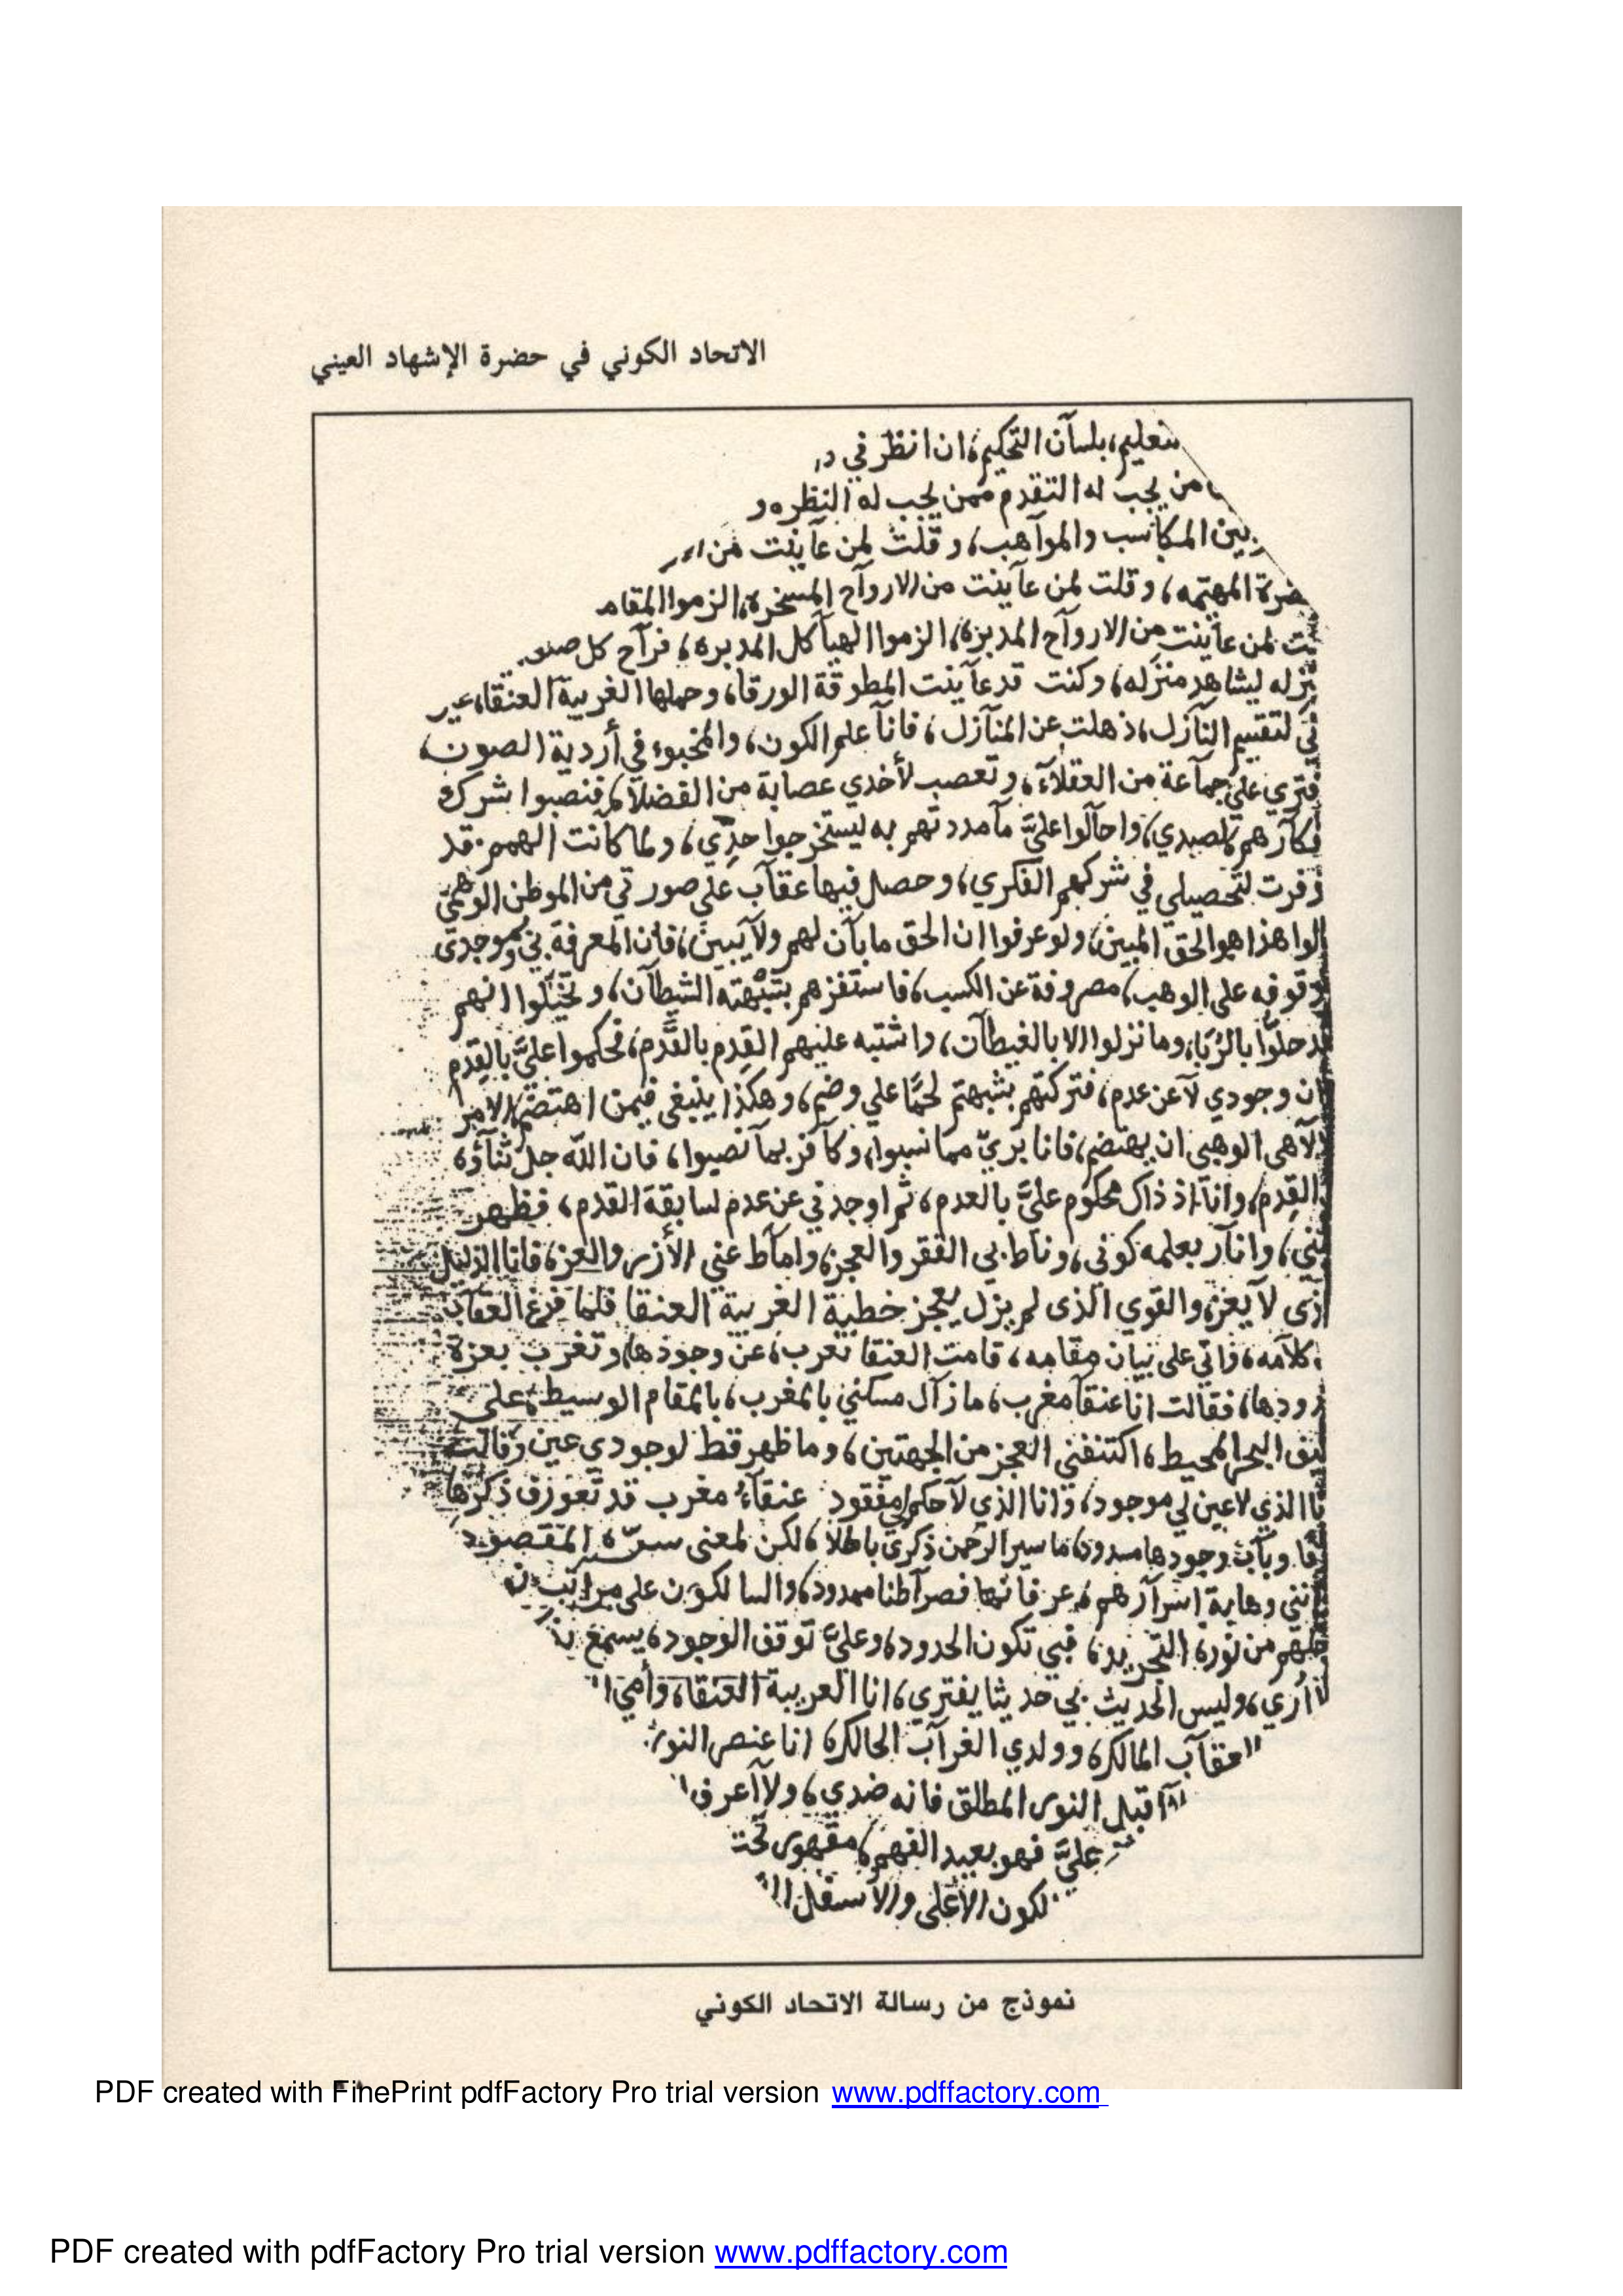 الاتحاد الكوني في حضرة الإشهاد العيني
بلسآن التحكيم، ان انظر في
من يجب له التقدم ممن يجب له النظره و
بين المكاسب والمواهب، وقلت لمن عاينت من
المهتمه، وقلت لمن عآينت من الاروآح المسخره، الزموا المقام
لمن عاينت من الاروآح المدبره، الزموا الهيآكل المدبره، فرآح كل
ليشاهد منزله، وكنت قد عآينت المطوقة الورقا، وحملها الغريبة العنقا، عير
لتقسيم النآزل، ذهلت عن المنآزل، فانآ علم الكون، والمخبوء في أردية الصون،
علي جمآعة من العقلآء، وتعصب لأخدي عصابة من الفضلا، فنصبوا شرك
لصيدي، واحآلوا عليَّ مآمددتهم به ليستخرجوا جدي، ولما كانت الهمم قد
لتحصيلي في شركهم الفكري، وحصل فيها عقآب على صورتي من الموطن الوهمي
هذا هو الحق المبين، ولو عرفوا ان الحق مابآن لهم ولا يبين، فان المعرفة بي وبموجدي
على الوهب، مصروفة عن الكسب، فاستفزهم بتبهته الشطآن، وتخيلوا انهم
حلوا بالربا، وما نزلوا الا بالغيطآن، واشتبه عليهم القِدم بالقَدم، فحكموا عليَّ بالقِدم
وجودي لآ عن عدم، فتركتهم بشبهتهم لحمًا علي وضم، وهكذا ينبغي فيمن اهتضم الامر
الوهبي ان يهتضم، فانا بريّ مما نسبوا، وكآفر بمآ نصبوا، فان الله جل ثنآؤه
القِدم، وانآ اذ ذاك محكوم عليَّ بالعدم، ثم اوجدني عن عدم لسابقة القدم، فظهر
وانآر بعلمه كوني، وناط بي الفقر والعجز، وامآط عني الأزر والعز، فانا الذليل
لا يعز، والقوي الذي لم يزل يعجز خطبة الغريبة العنقا فلما فرغ العقآب
كلآمه، واتي على بيان مقامه، قامت العنقا تعرب، عن وجودها، وتغرب بعزة
فقالت انا عنقآ مغرب، مازآل مسكني بالمغرب، بالمقام الوسيط، على
البحر المحيط، اكتنفني العجز من الجهتين، وما ظهر قط لوجودي عين وقالت
الذي لا عين لي موجود، وانا الذي لآ حكم لي مفقود عنقآءُ مغرب قد تعورف ذكرها
وبآب وجودها مسدود، ما سير الرحمن ذكرى باطلا، لكن لمعنى سرّه المقصود
وهابة اسرآرهم، عرفانها فصرآطنا ممدود، والسالكون على مراتب
من نوره التجريد، فبي تكون الحدود، وعليَّ توقف الوجود، يسمع بذ
أري، وليس الحديث بي حديثا يفتري، انا الغريبة العنقاء، وأمي
العقآب المالك، وولدي الغرآب الحالك، انا عنصر النور
اقبل النور المطلق فانه ضدي، ولآ أعرف
عليَّ فهو بعيد الفهم، مقهور تحت
الأعلى والأسفل
نموذج من رسالة الاتحاد الكوني
PDF created with FinePrint pdfFactory Pro trial version www.pdffactory.com
PDF created with pdfFactory Pro trial version www.pdffactory.com